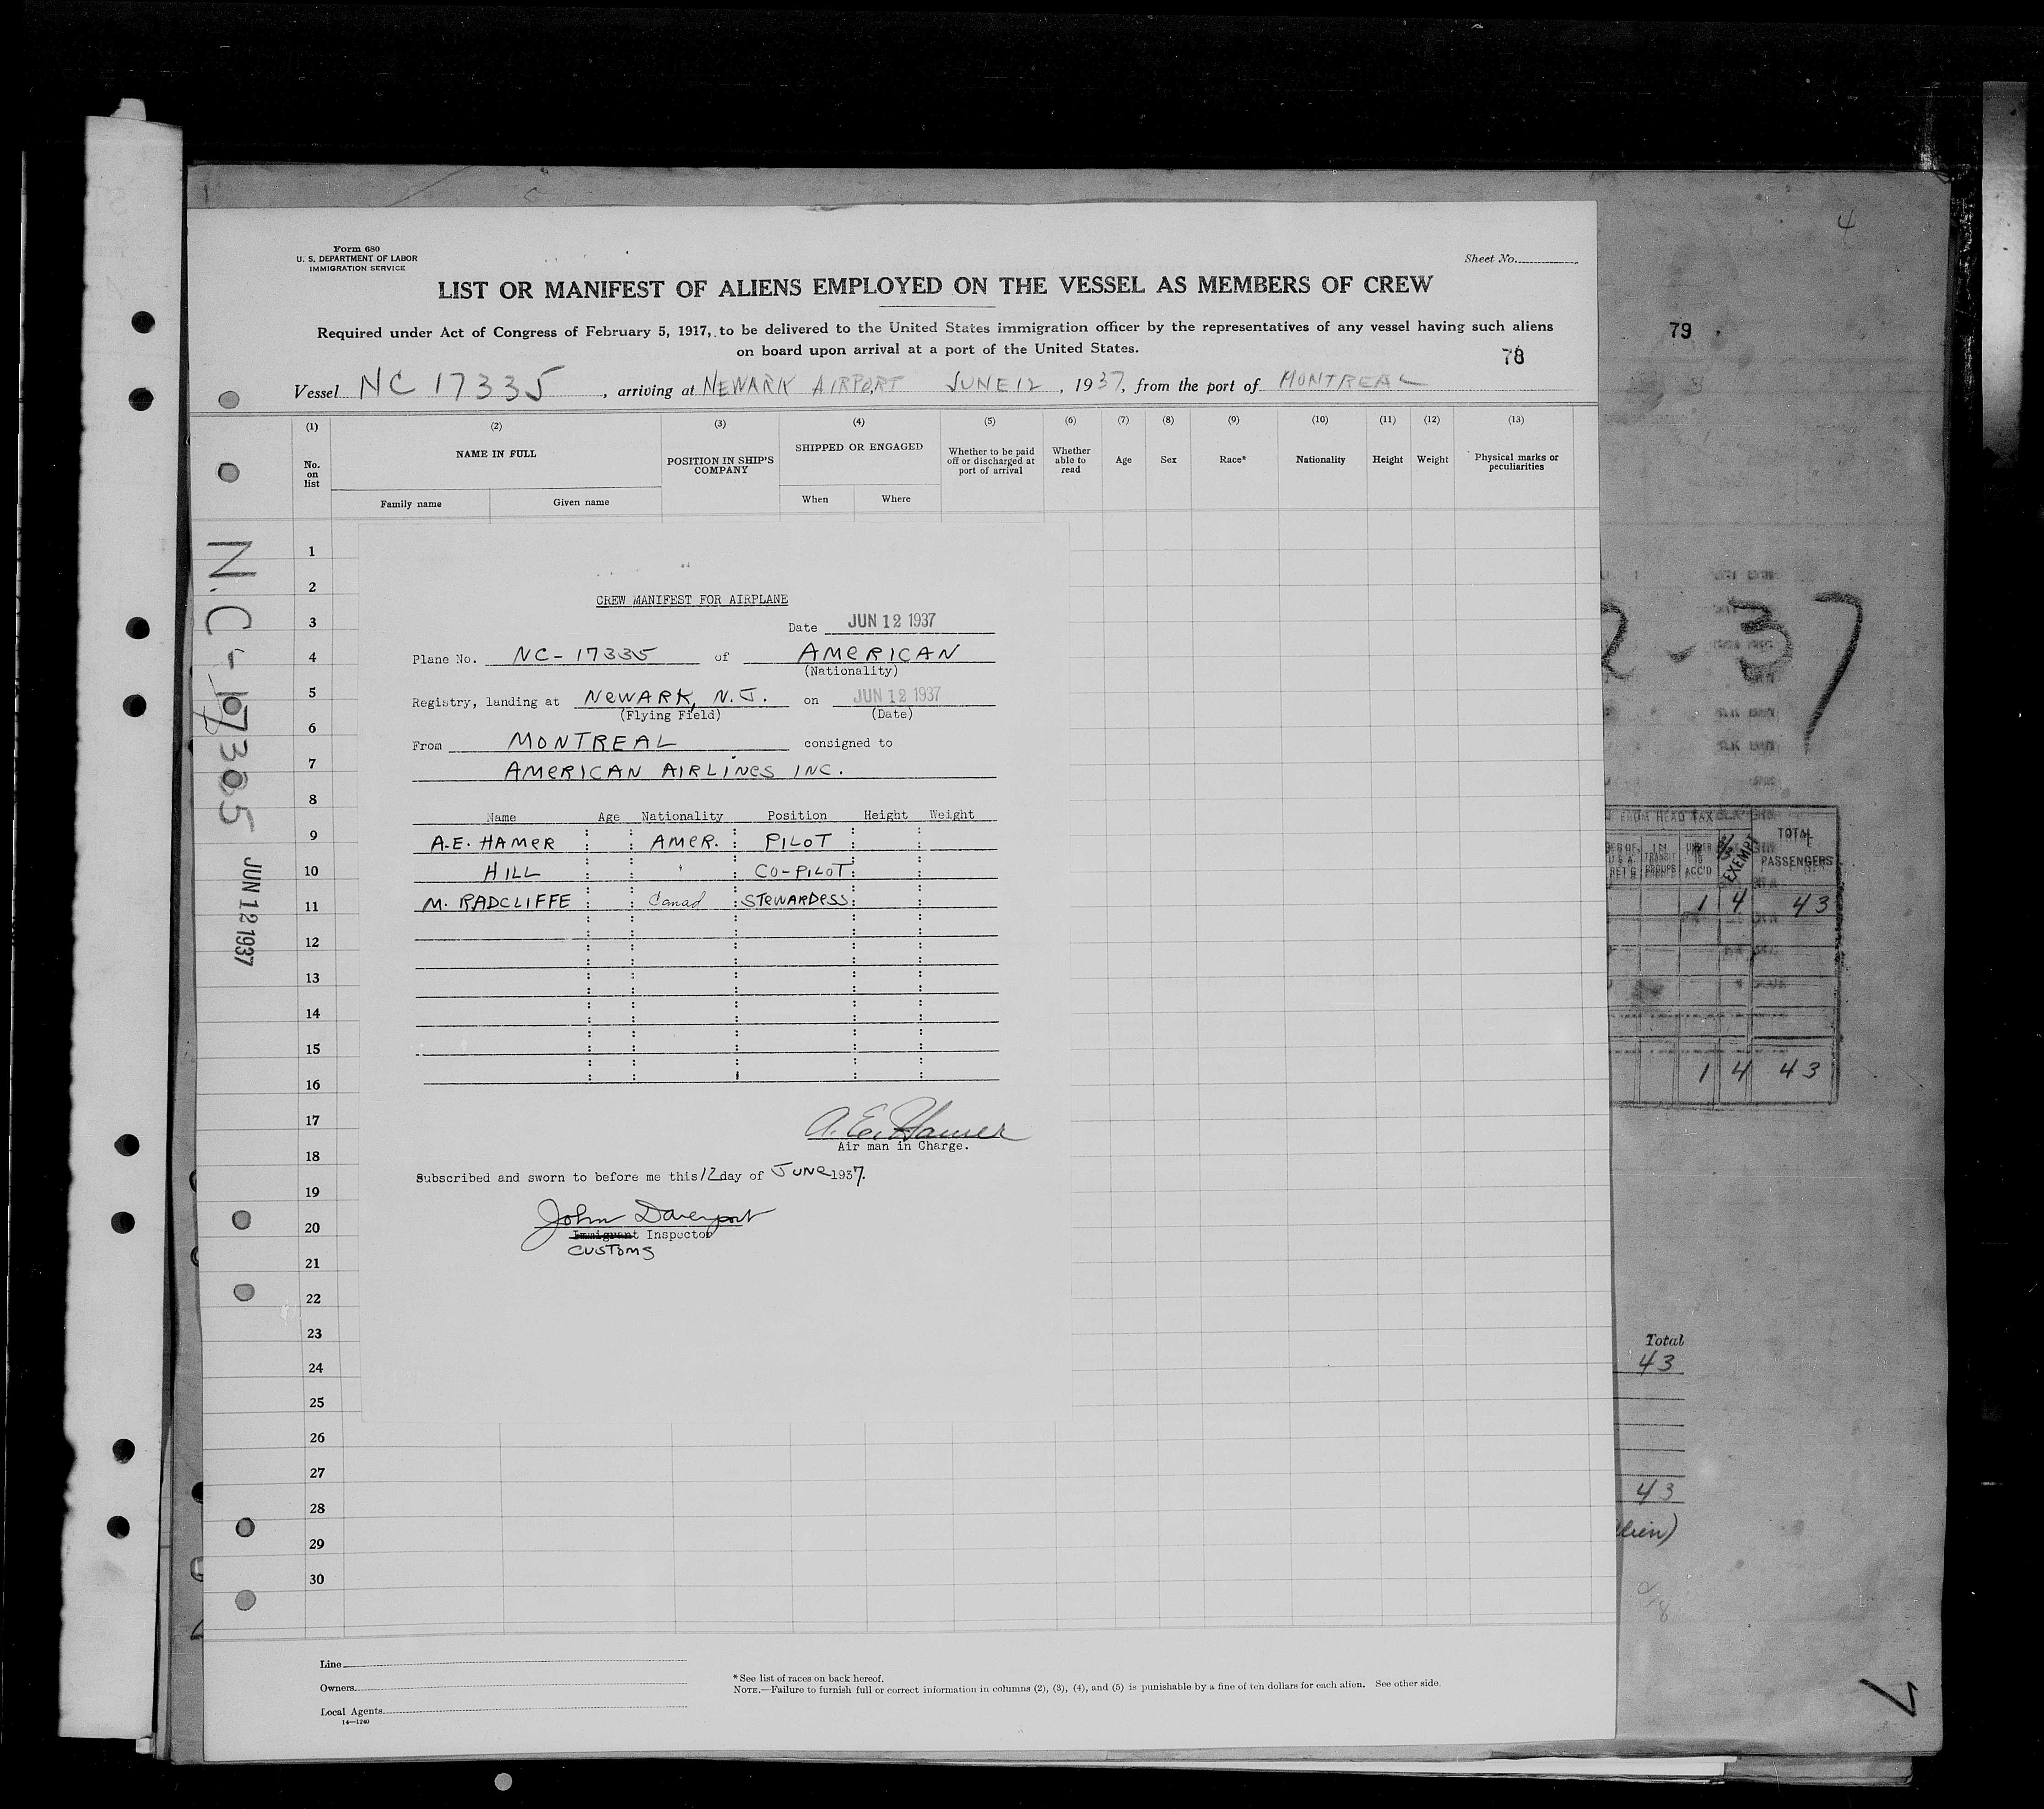 4
Form 680
U. S. DEPARTMENT OF LABOR
IMMIGRATION SERVICE
Sheet No.
LIST OR MANIFEST OF ALIENS EMPLOYED ON THE VESSEL AS MEMBERS OF CREW
Required under Act of Congress of February 5, 1917, to be delivered to the United States immigration officer by the representatives of any vessel having such aliens
on board upon arrival at a port of the United States.
78
79
Vessel NC 17335, arriving at NEWARK AIRPORT JUNE 12, 1937, from the port of MONTREAL
(1) (2) (3) (4) (5) (6) (7) (8) (9) (10) (11) (12) (13)
No. on list
NAME IN FULL
Family name Given name
POSITION IN SHIP'S COMPANY
SHIPPED OR ENGAGED
When Where
Whether to be paid off or discharged at port of arrival
Whether able to read
Age Sex Race* Nationality Height Weight
Physical marks or peculiarities
1
2
3
4
5
6
7
8
9
10
11
12
13
14
15
16
17
18
19
20
21
22
23
24
25
26
27
28
29
30
JUN 12 1937
CREW MANIFEST FOR AIRPLANE
Date JUN 12 1937
Plane No. NC-17335 of AMERICAN
(Nationality)
Registry, landing at NEWARK, N.J. on JUN 12 1937
(Flying Field) (Date)
From MONTREAL consigned to
AMERICAN AIRLINES INC.
Name Age Nationality Position Height Weight
A.E. HAMER AMER. PILOT
HILL " CO-PILOT
M. RADCLIFFE Canad STEWARDESS
A. E. Hamer
Air man in Charge.
Subscribed and sworn to before me this 12 day of JUNE 1937.
John Davenport
Immigrant Inspector
CUSTOMS
Line
Owners
Local Agents
14—1240
* See list of races on back hereof.
NOTE.—Failure to furnish full or correct information in columns (2), (3), (4), and (5) is punishable by a fine of ten dollars for each alien. See other side.
2-37
FROM HEAD TAX
IN TRANSIT GROUPS
EXEMPT
TOTAL
PASSENGERS
1 4 43
1 4 43
Total
43
43
7